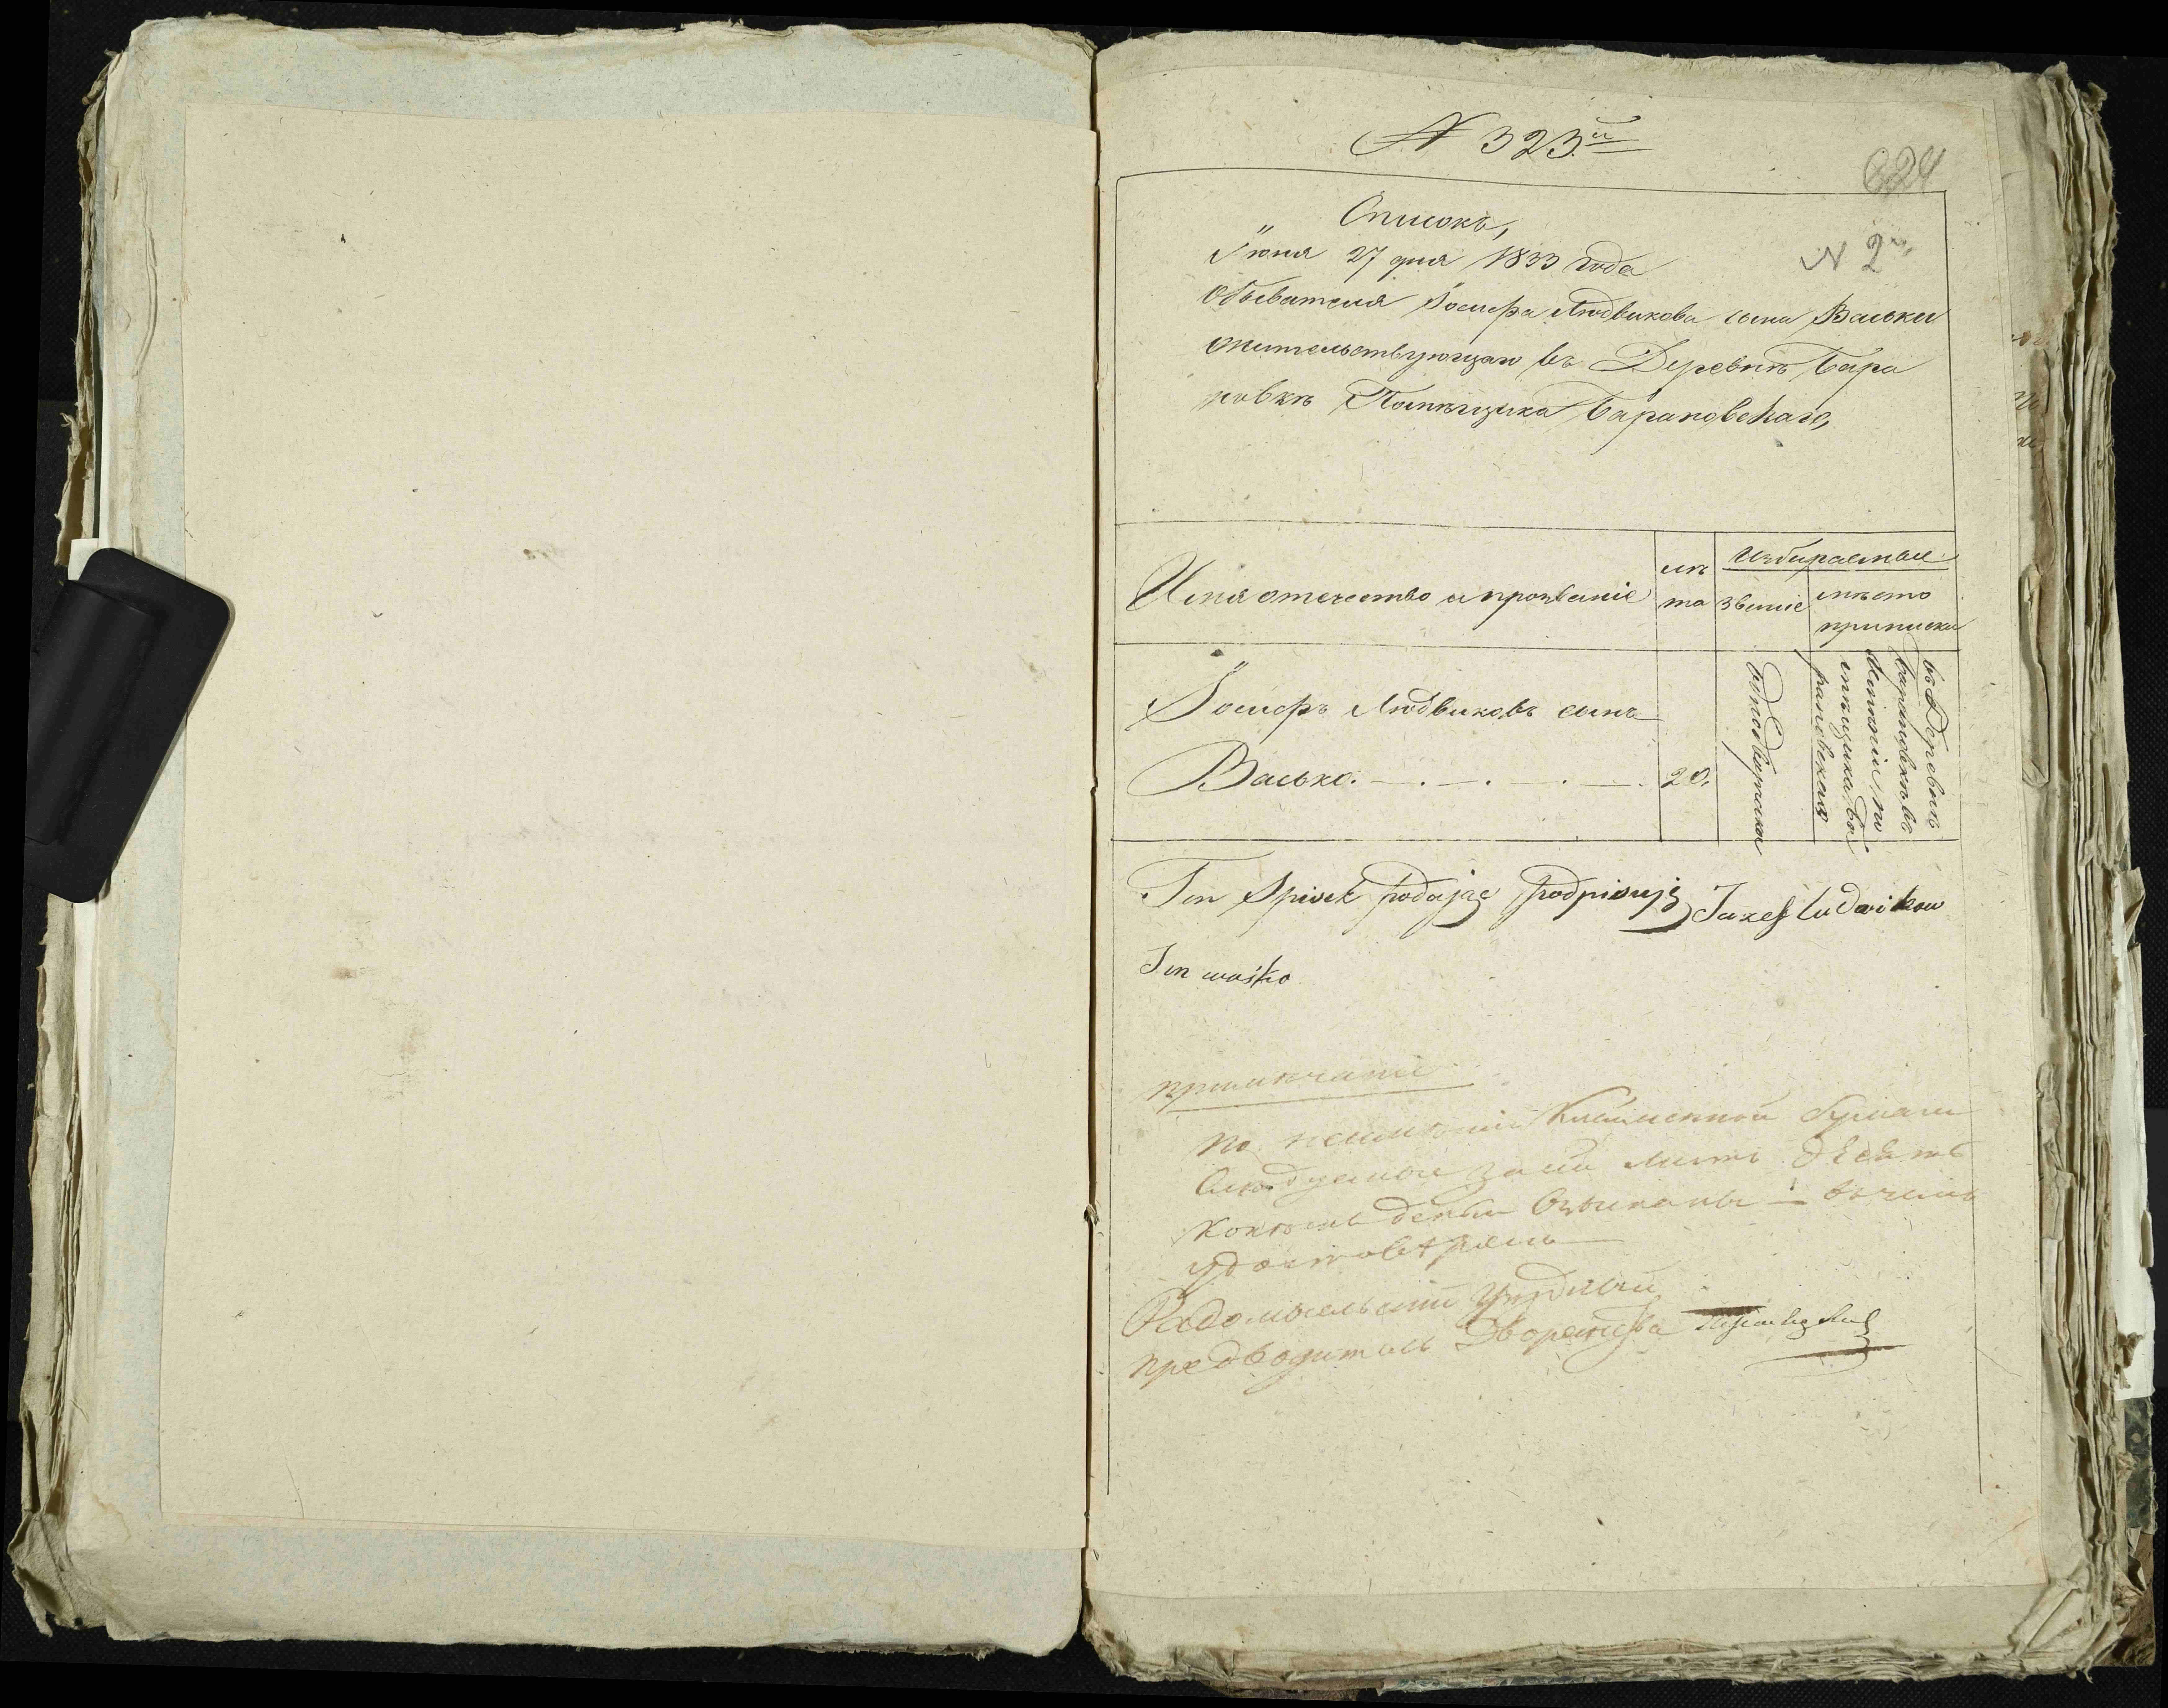 N 323й
624
Списокъ,
N 2й
Iюня 27 дня 1833 года
Обывателя Iосифа Людвикова сына Васьки
жительствующаго въ Деревнѣ Бара
новкѣ Помѣщика Барановскаго,
Имя отечество и прозванiе
лѣ
та
Избираемые
званiе
мѣсто
приписки
Iосифъ Людвиковъ сынъ
Васько.
20.
однодворческое
въ Деревнѣ
Барановкѣ въ
имѣнiи, по
мѣщика, Ба
рановскаго
Ten Spisek podając podpisuję Juzef Ludwikow
Sin waśko
примѣчанiе
По неимѣнiю Клейменной бумаги
Слѣдуемые за сей листъ десять
Копѣекъ денги взысканы — въ чемъ
удостовѣряемъ
Радомысльскiй Уѣздный
предводитель Дворянства